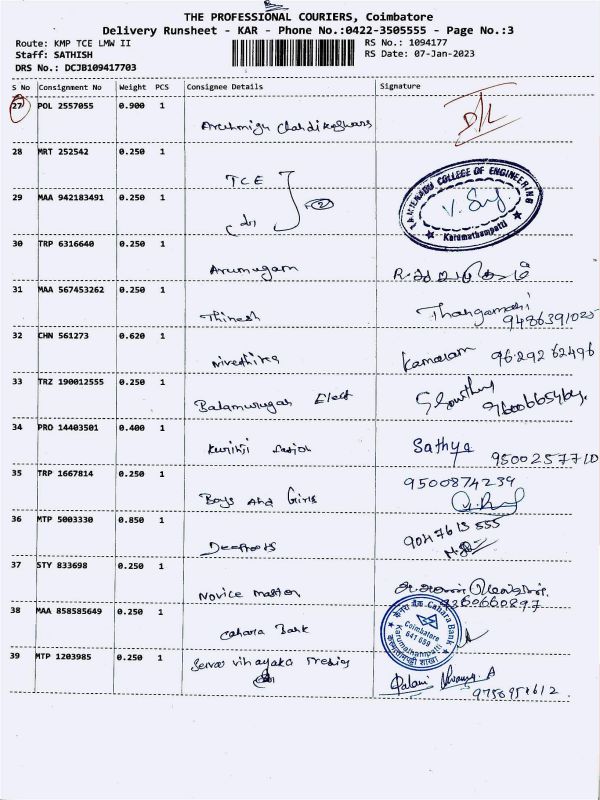 THE PROFESSIONAL COURIERS, Coimbatore
Delivery Runsheet - KAR - Phone No.:0422-3505555 - Page No.:3
Route: KMP TCE LMW II
RS No.: 1094177
Staff: SATHISH
RS Date: 07-Jan-2023
DRS No.: DCJB109417703
S No Consignment No Weight PCS Consignee Details Signature
27 POL 2557055 0.900 1
D/L
28 MRT 252542 0.250 1
TCE
29 MAA 942183491 0.250 1
COLLEGE OF ENGINEERING
Karumathampatti
30 TRP 6316640 0.250 1
Arumugam
31 MAA 567453262 0.250 1
Thinesh Thangamani
9486391025
32 CHN 561273 0.620 1
Nivethika Kamalam 96292 62496
33 TRZ 190012555 0.250 1
Balamurugan Elect
34 PRO 14403501 0.400 1
Kurinji Sathya
9500257710
35 TRP 1667814 0.250 1
9500874239
Boys And Girls
36 MTP 5003330 0.850 1
9047613555
Deeproots
37 STY 833698 0.250 1
Novice
9360660897
38 MAA 858585649 0.250 1
Canara Bank
Coimbatore
641 659
Canara Bank
39 MTP 1203985 0.250 1
Palani A